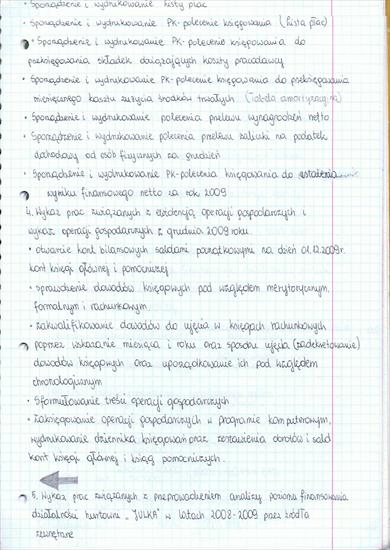 • Sporządzenie i wydrukowanie listy płac
• Sporządzenie i wydrukowanie PK-polecenie księgowania (lista płac)
• Sporządzenie i wydrukowanie PK-polecenie księgowania do
przeksięgowania składek obciążających koszty pracodawcy
• Sporządzenie i wydrukowanie PK-polecenie księgowania do przeksięgowania
miesięcznego kosztu zużycia środków trwałych (Tabela amortyzacyjna)
• Sporządzenie i wydrukowanie polecenia przelewu wynagrodzeń netto
• Sporządzenie i wydrukowanie polecenia przelewu zaliczki na podatek
dochodowy od osób fizycznych za grudzień
• Sporządzenie i wydrukowanie PK-polecenia księgowania do ustalenia
wyniku finansowego netto za rok 2009
4. Wykaz prac związanych z ewidencją operacji gospodarczych i
wykaz operacji gospodarczych z grudnia 2009 roku.
• otwarcie kont bilansowych saldami początkowymi na dzień 01.12.2009r.
kont księgi głównej i pomocniczej
• sprawdzenie dowodów księgowych pod względem merytorycznym,
formalnym i rachunkowym
• zakwalifikowanie dowodów do ujęcia w księgach rachunkowych
• poprzez wskazanie miesiąca i roku oraz sposobu ujęcia (zadekretowanie)
dowodów księgowych oraz uporządkowanie ich pod względem
chronologicznym
• Sformułowanie treści operacji gospodarczych
• zaksięgowanie operacji gospodarczych w programie komputerowym,
wydrukowanie dziennika księgowań oraz zestawienia obrotów i sald
kont księgi głównej i ksiąg pomocniczych.
5. Wykaz prac związanych z przeprowadzeniem analizy poziomu finansowania
działalności hurtowni „JULKA" w latach 2008-2009 przez źródła
zewnętrzne